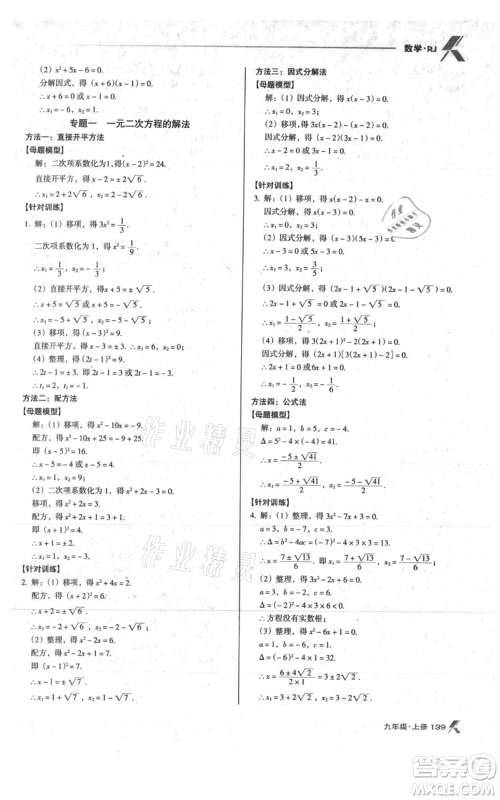 数学·RJ
(2) x²+5x-6=0.
分解因式，得 (x+6)(x-1)=0.
∴x+6=0 或 x-1=0.
∴x₁=-6, x₂=1.
专题一 一元二次方程的解法
方法一：直接开平方法
【母题模型】
解：二次项系数化为1，得 (x-2)²=24.
直接开平方，得 x-2=±2√6.
∴x₁=2+2√6, x₂=2-2√6.
【针对训练】
1. 解：(1) 移项，得 3x²=1/3.
二次项系数化为1，得 x²=1/9.
∴x₁=1/3, x₂=-1/3.
(2) 直接开平方，得 x+5=±√5.
∴x₁=-5+√5, x₂=-5-√5.
(3) 移项，得 (x-3)²=9.
∴x-3=±3. ∴x₁=6, x₂=0.
(4) 整理，得 (2t-1)²=9.
∴2t-1=±3. ∴t₁=2, t₂=-1.
方法二：配方法
【母题模型】
解：(1) 移项，得 x²-10x=-9.
配方，得 x²-10x+25=-9+25.
即 (x-5)²=16.
∴x₁=1, x₂=9;
(2) 二次项系数化为1，得 x²+2x-3=0.
移项，得 x²+2x=3.
配方，得 x²+2x+1=3+1.
即 (x+1)²=4.
∴x₁=1, x₂=-3.
【针对训练】
2. 解：(1) 移项，得 x²+4x=2.
配方，得 (x+2)²=6.
∴x+2=±√6.
∴x₁=-2+√6, x₂=-2-√6;
(2) 整理，得 x²+2x-6=0.
配方，得 x²+2x+1=6+1.
即 (x+1)²=7.
∴x₁=-1+√7, x₂=-1-√7.
方法三：因式分解法
【母题模型】
解：(1) 因式分解，得 x(x-3)=0.
∴x₁=0, x₂=3;
(2) 移项，得 3x(x-2)-(x-2)=0.
因式分解，得 (3x-1)(x-2)=0.
∴3x-1=0 或 x-2=0.
∴x₁=1/3, x₂=2.
【针对训练】
3. 解：(1) 移项，得 x²-3x=0.
因式分解，得 x(x-3)=0.
∴x=0 或 x-3=0. ∴x₁=0, x₂=3;
(2) 因式分解，得 (x-3)(5x-3)=0.
∴x-3=0 或 5x-3=0.
∴x₁=3, x₂=3/5;
(3) 因式分解，得 (2x-1+√5)(2x-1-√5)=0.
∴2x-1+√5=0 或 2x-1-√5=0.
∴x₁=(1-√5)/2, x₂=(1+√5)/2;
(4) 移项，得 3(2x+1)²-2(2x+1)=0.
因式分解，得 (2x+1)[3(2x+1)-2]=0.
∴2x+1=0 或 3(2x+1)-2=0.
∴x₁=-1/2, x₂=-1/6.
方法四：公式法
【母题模型】
解：a=1, b=5, c=-4.
Δ=5²-4×1×(-4)=41>0.
∴x=(-5±√41)/2.
∴x₁=(-5+√41)/2, x₂=(-5-√41)/2.
【针对训练】
4. 解：(1) 整理，得 3x²-7x+3=0.
a=3, b=-7, c=3.
Δ=(-7)²-4×3×3=13>0.
∴x=(7±√13)/6.
∴x₁=(7+√13)/6, x₂=(7-√13)/6;
(2) 整理，得 3x²-6x-2=0.
a=3, b=-6, c=-2.
Δ=(-6)²-4×3×(-2)=60>0.
∴方程有两个不等实数根.
∴x₁=(3+√15)/3, x₂=(3-√15)/3;
(3) 整理，得 x²-6x+1=0.
a=1, b=-6, c=1.
Δ=(-6)²-4×1×1=32>0.
∴x=(6±4√2)/2=3±2√2.
∴x₁=3+2√2, x₂=3-2√2.
作业精灵
作业精灵
九年级·上册 139